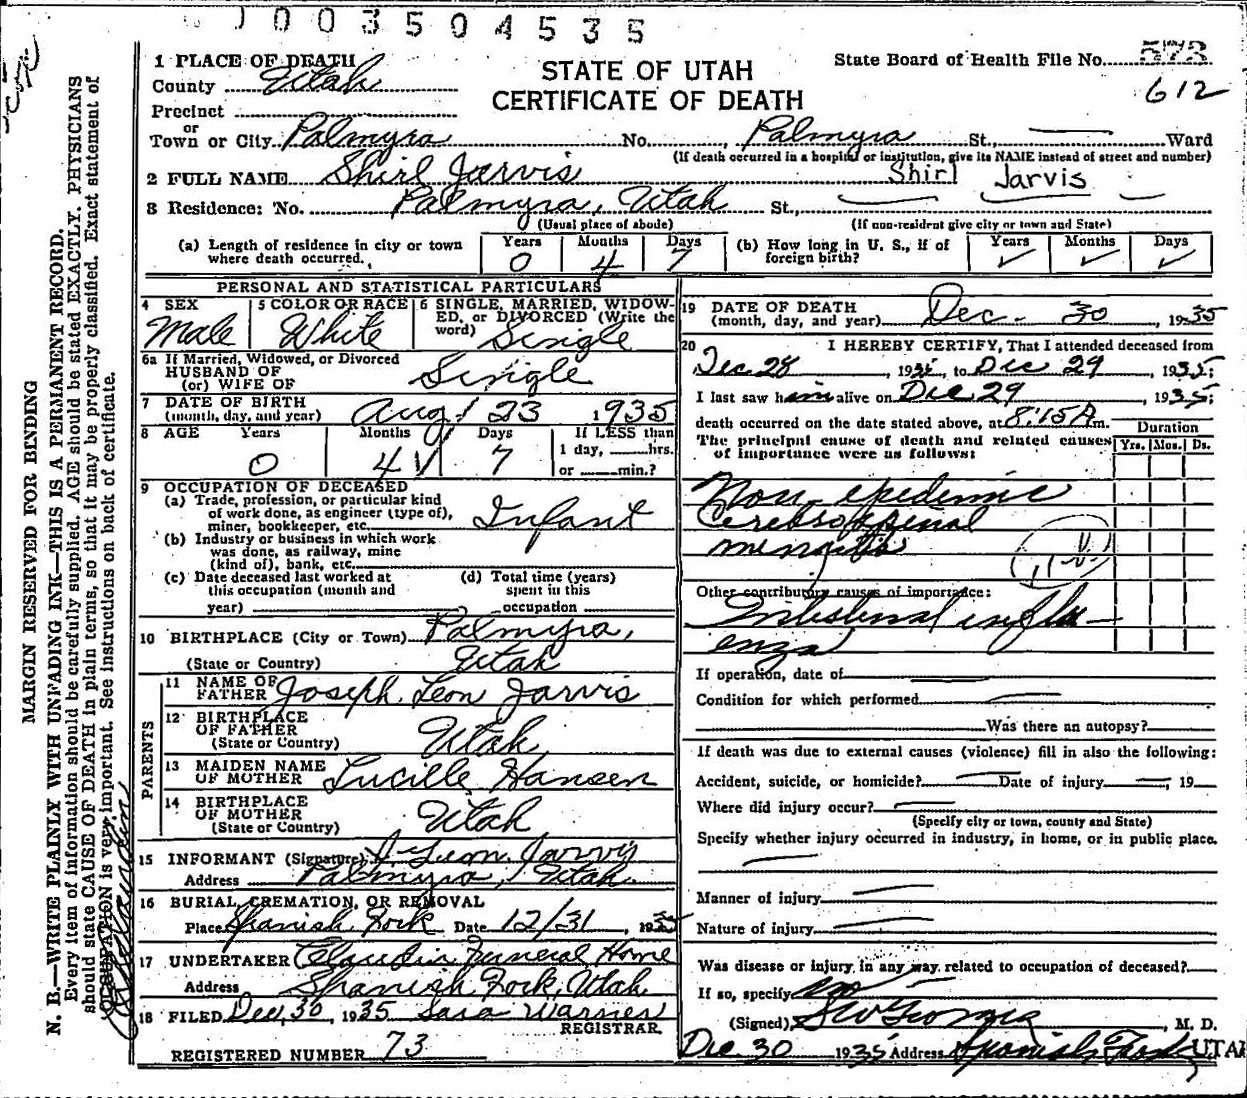 003504535
1 PLACE OF DEATH
County Utah
Precinct
or
Town or City Palmyra No. Palmyra St., Ward
STATE OF UTAH
CERTIFICATE OF DEATH
State Board of Health File No. 573
612
(If death occurred in a hospital or institution, give its NAME instead of street and number)
2 FULL NAME Shirl Jarvis Shirl Jarvis
3 Residence: No. Palmyra, Utah St.,
(Usual place of abode) (If non-resident give city or town and State)
(a) Length of residence in city or town where death occurred. Years 0 Months 4 Days 7 (b) How long in U. S., if of foreign birth? Years Months Days
PERSONAL AND STATISTICAL PARTICULARS
4 SEX 5 COLOR OR RACE 6 SINGLE, MARRIED, WIDOWED, or DIVORCED (Write the word)
Male White Single
6a If Married, Widowed, or Divorced
HUSBAND OF
(or) WIFE OF Single
7 DATE OF BIRTH
(month, day, and year) Aug 23 1935
8 AGE Years Months Days If LESS than
1 day, hrs.
or min.?
0 4 7
9 OCCUPATION OF DECEASED
(a) Trade, profession, or particular kind
of work done, as engineer (type of),
miner, bookkeeper, etc. Infant
(b) Industry or business in which work
was done, as railway, mine
(kind of), bank, etc.
(c) Date deceased last worked at
this occupation (month and
year)
(d) Total time (years)
spent in this
occupation
10 BIRTHPLACE (City or Town) Palmyra,
(State or Country) Utah
PARENTS
11 NAME OF
FATHER Joseph Leon Jarvis
12 BIRTHPLACE
OF FATHER
(State or Country) Utah
13 MAIDEN NAME
OF MOTHER Lucille Hansen
14 BIRTHPLACE
OF MOTHER
(State or Country) Utah
15 INFORMANT (Signature) J. Leon Jarvis
Address Palmyra, Utah
16 BURIAL, CREMATION, OR REMOVAL
Place Spanish Fork Date 12/31, 1935
17 UNDERTAKER Claudin Funeral Home
Address Spanish Fork, Utah
18 FILED Dec. 30, 1935 Sara Warner
REGISTRAR
REGISTERED NUMBER 73
19 DATE OF DEATH
(month, day, and year) Dec. 30, 1935
20 I HEREBY CERTIFY, That I attended deceased from
Dec 28, 1935, to Dec 29, 1935;
I last saw him alive on Dec 29, 1935;
death occurred on the date stated above, at 8:15 A m.
The principal cause of death and related causes
of importance were as follows:
Duration
Yrs. Mos. Ds.
Non-epidemic
Cerebrospinal
meningitis
Other contributory causes of importance:
Intestinal influ-
enza
If operation, date of
Condition for which performed
Was there an autopsy?
If death was due to external causes (violence) fill in also the following:
Accident, suicide, or homicide? Date of injury , 19
Where did injury occur?
(Specify city or town, county and State)
Specify whether injury occurred in industry, in home, or in public place.
Manner of injury
Nature of injury
Was disease or injury in any way related to occupation of deceased?
If so, specify no
(Signed) , M. D.
Dec. 30 1935 Address Spanish Fork UTAH
MARGIN RESERVED FOR BINDING
N. B.—WRITE PLAINLY WITH UNFADING INK—THIS IS A PERMANENT RECORD.
Every item of information should be carefully supplied. AGE should be stated EXACTLY. PHYSICIANS
should state CAUSE OF DEATH in plain terms, so that it may be properly classified. Exact statement of
OCCUPATION is very important. See instructions on back of certificate.